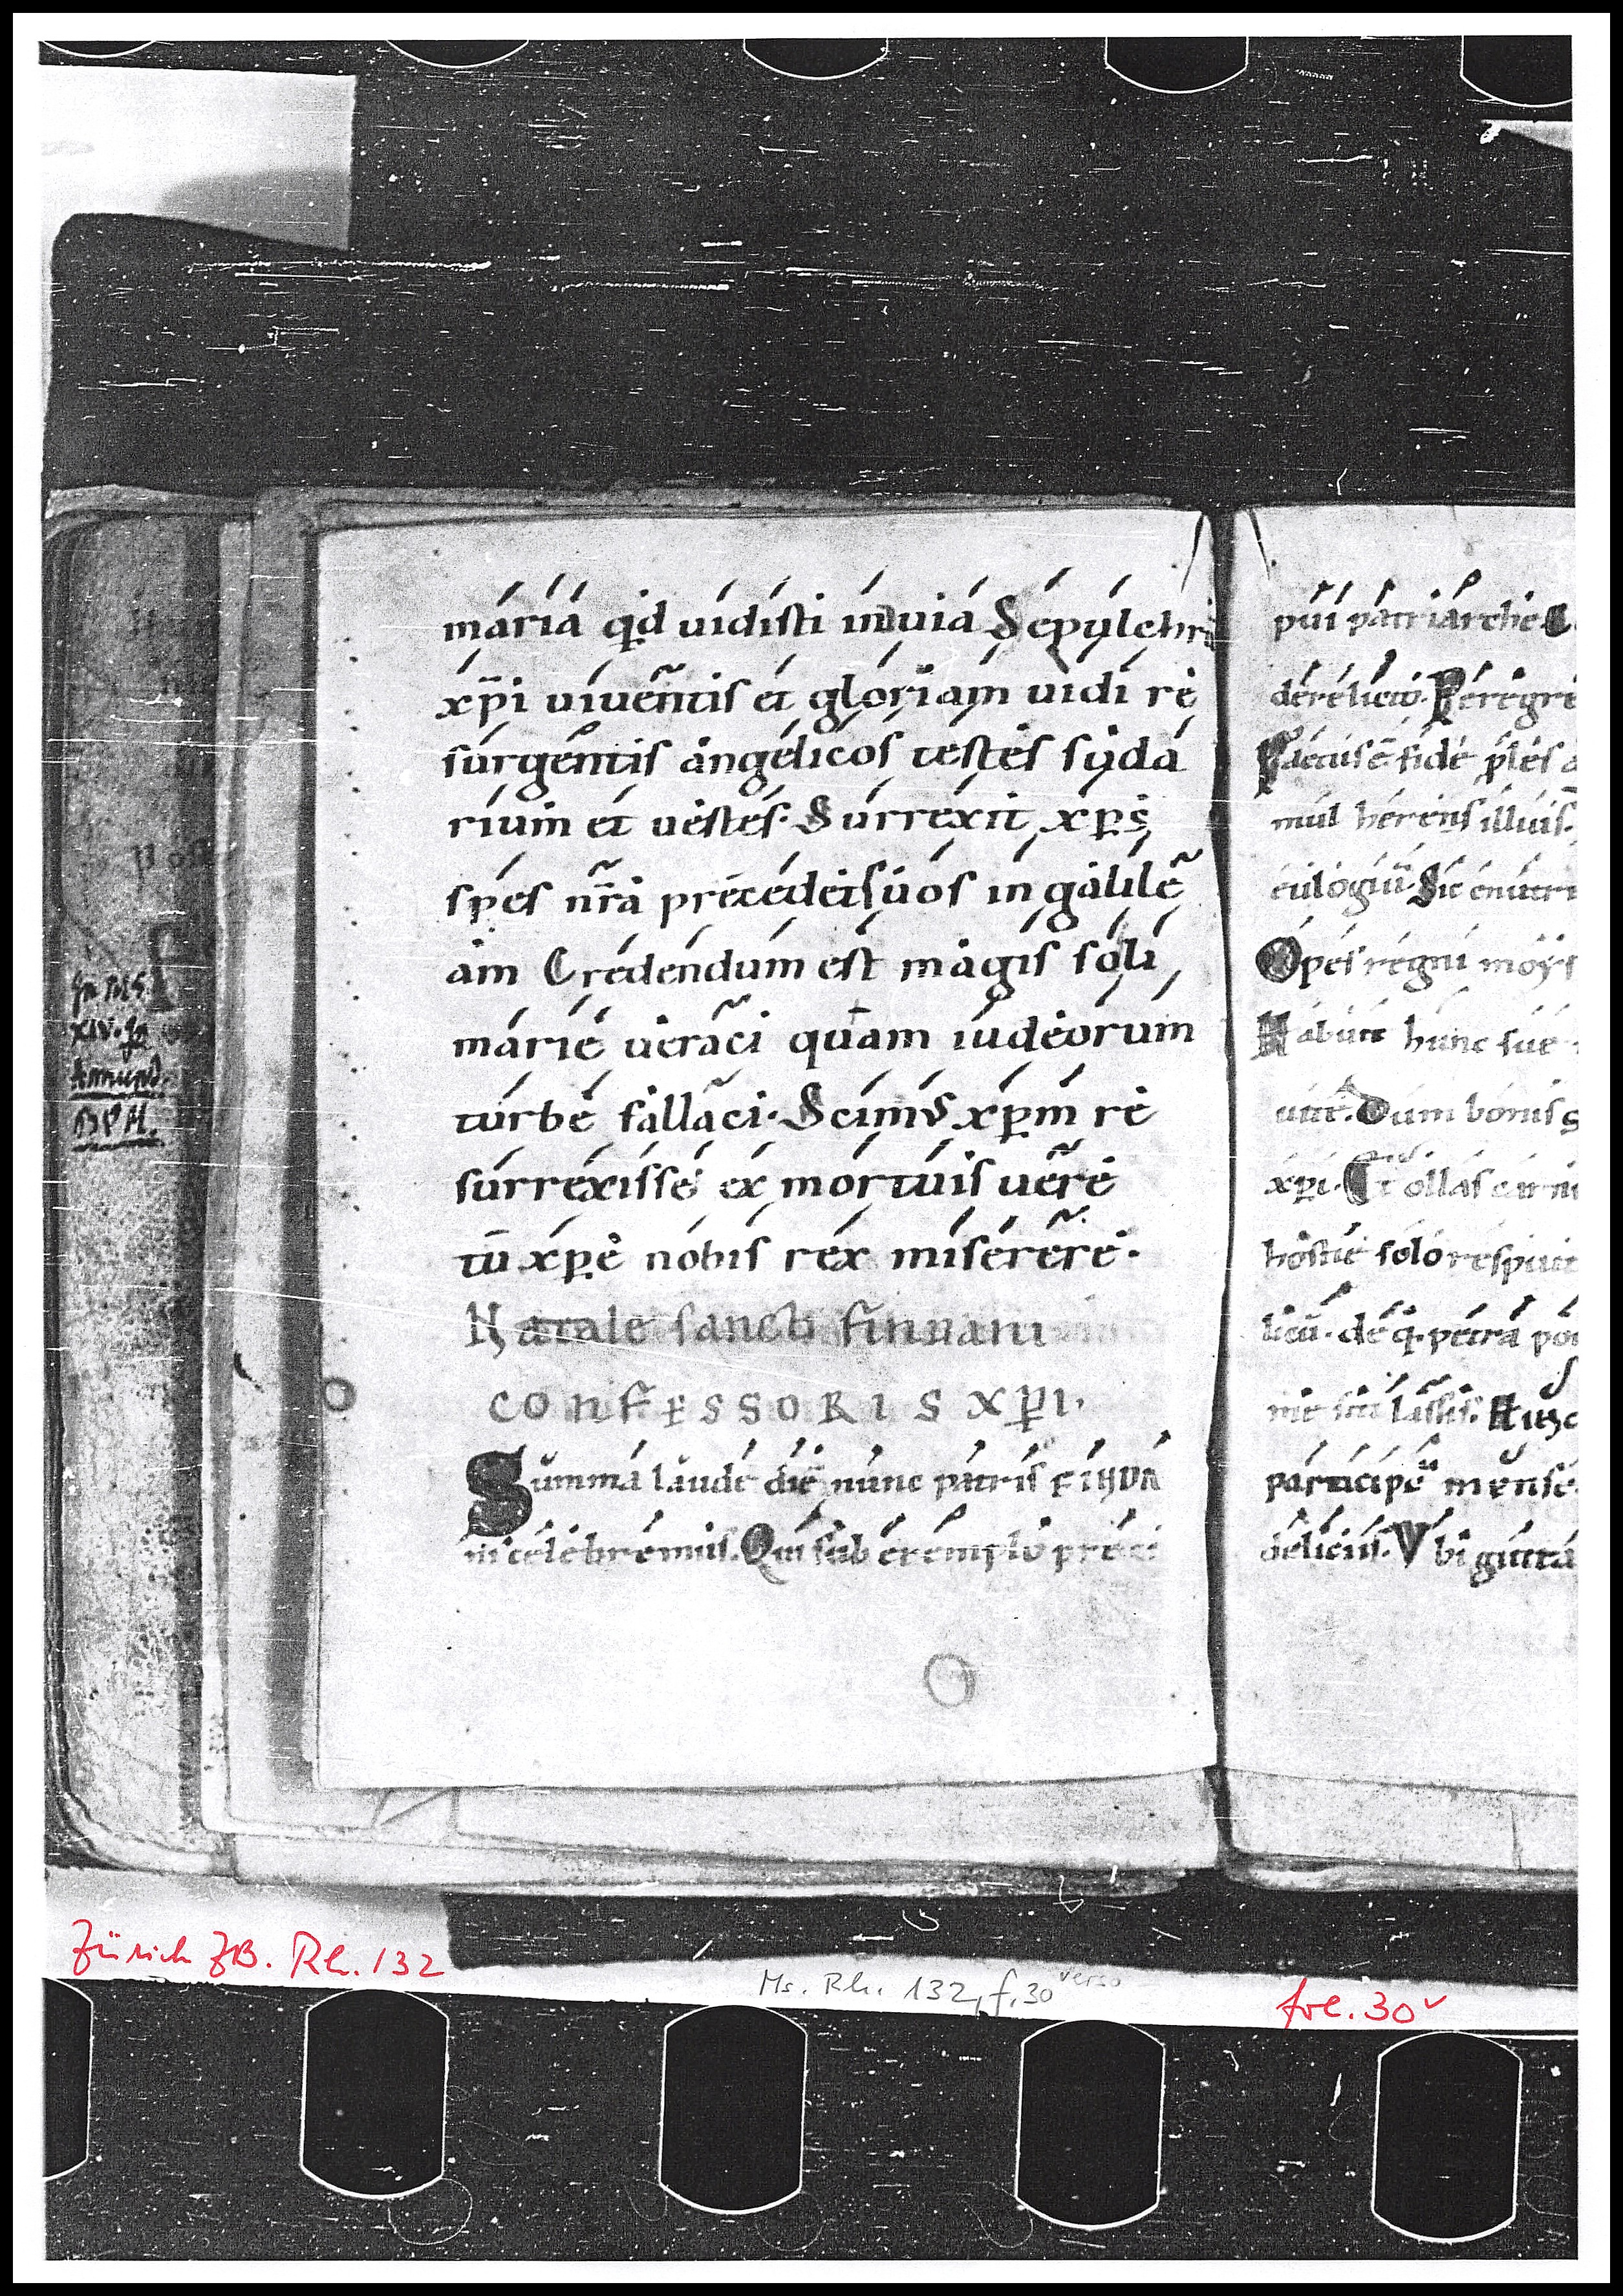 maria qd uidisti in uia Sepulchri
xp̄i uiuentis et gloriam uidi re
surgentis angelicos testes syda
rium et uestes. Surrexit xp̄s
spes nr̄a precedet suos in galile
am Credendum est magis soli
marie ueraci quam iudeorum
turbe fallaci. Scimus xp̄m re
surrexisse ex mortuis uere
tū xp̄e nobis rex miserere.
Natale sancti finnani
CONFESSORIS XP̄I.
Summa laude diē nunc patris FINDA
ni celebremus. Qui sub exemplo preci
pui patriarche
derelicto. Peregri
Factus ē fide p̄les a
mul herens illius.
eulogiū. Sic
Opes regni moys
hunc sue
Dum bonis
xp̄i. Et ollas carni
hostie solo respuit
de q. petra
participē mense
deliciis. Vbi gutta
Zürich ZB. Rh. 132
Ms. Rh. 132, f. 30 verso
fol. 30v